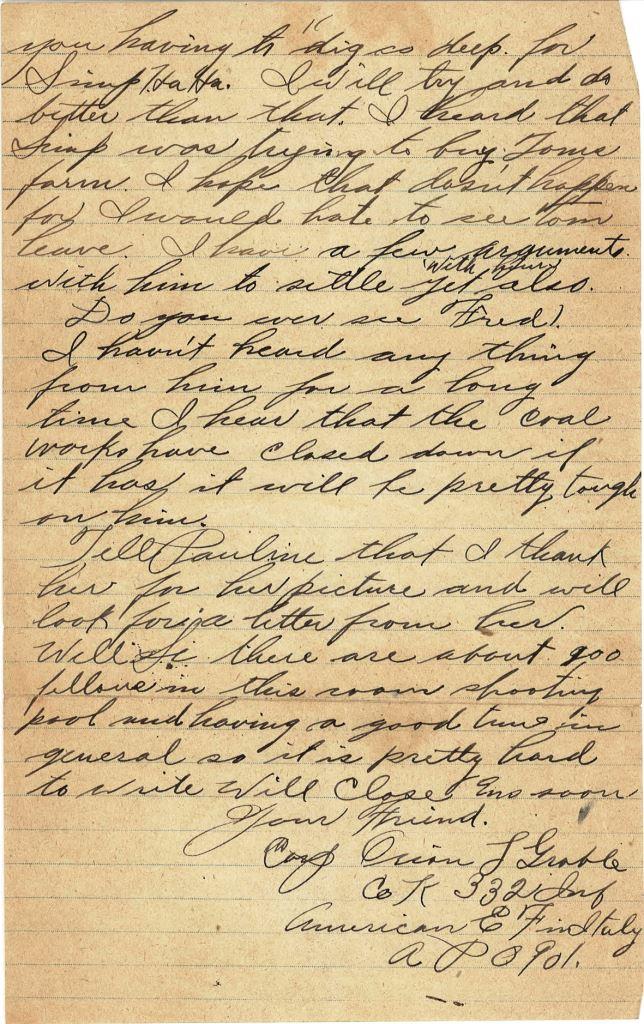 you having to "dig so deep. for
Simp Ha Ha. I will try and do
better than that. I heard that
Simp was trying to buy Toms
farm. I hope that doesn't happen
for I would hate to see Tom
leave. I have a few arguments
with him to settle yet also.
Do you ever see Fred?
I havn't heard any thing
from him for a long
time I hear that the coal
works have closed down if
it has it will be pretty tough
on him.
Tell Pauline that I thank
her for her picture and will
look for a letter from her.
Well there are about 900
fellows in this room shooting
pool and having a good time in
general so it is pretty hard
to write Will Close soon
Your Friend.
Corp Orion L Groble
Co K 332 Inf
American E F in Italy
A P O 901.